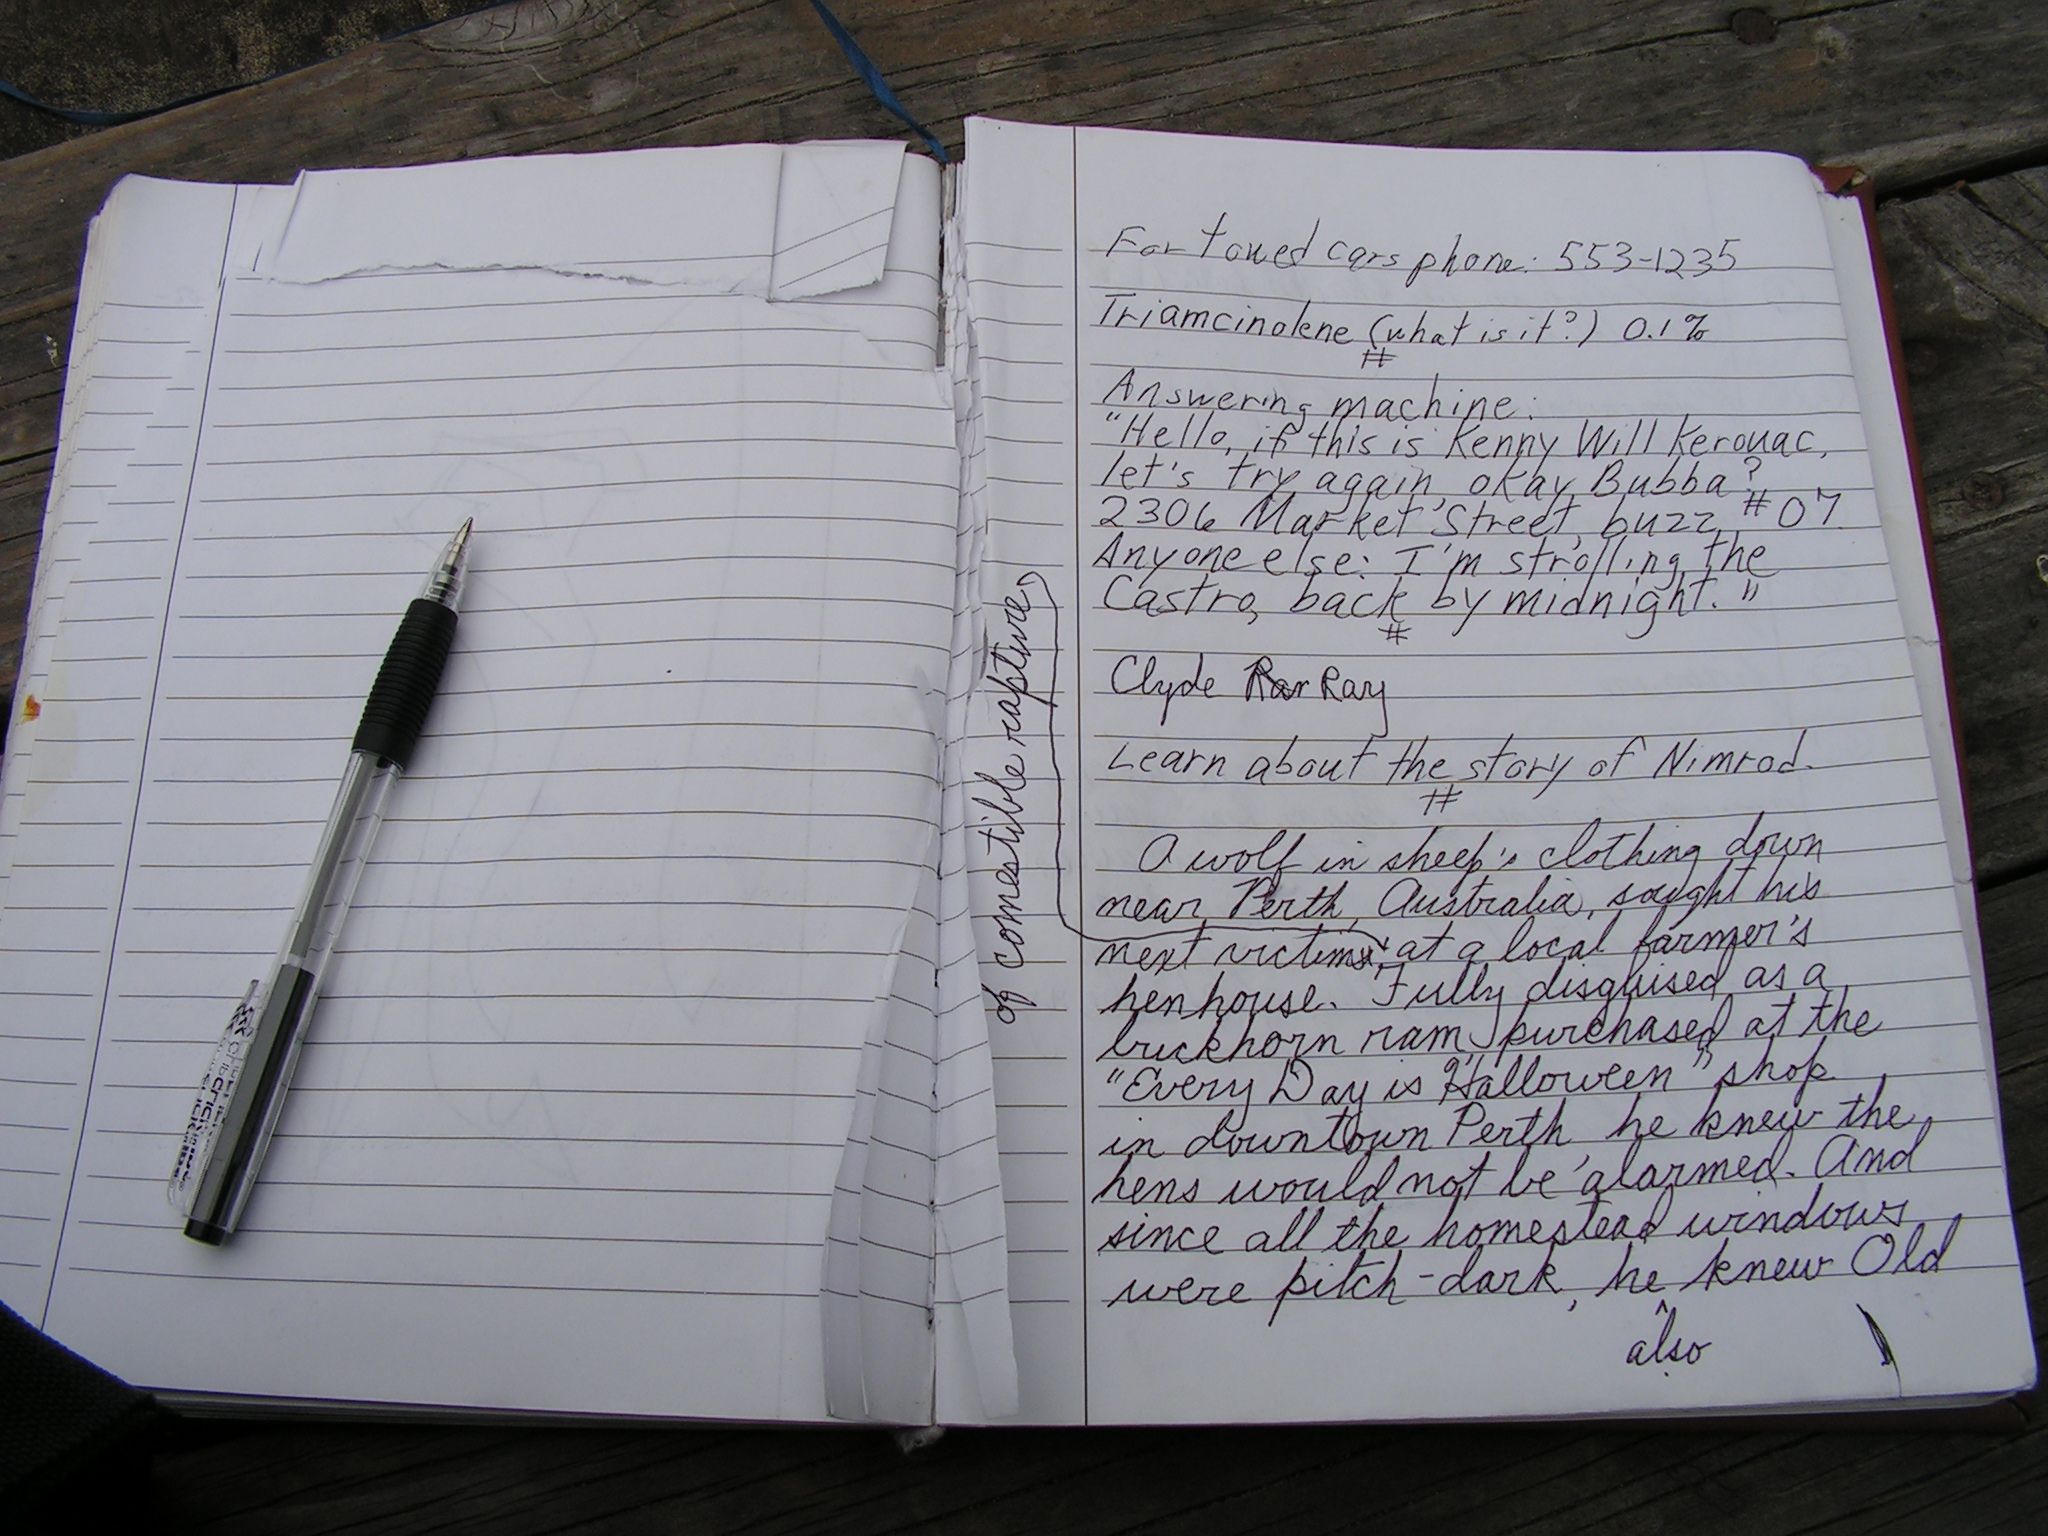 For towed cars phone: 553-1235
Triamcinolene (what is it?) 0.1%
#
Answering machine:
"Hello, if this is Kenny Will Kerouac,
let's try again, okay, Bubba?
2306 Market Street, buzz #07.
Anyone else: I'm strolling the
Castro, back by midnight."
#
Clyde Rar Ray
Learn about the story of Nimrod.
#
A wolf in sheep's clothing down
near Perth, Australia, sought his
next victims, at a local farmer's
of comestible rapture
henhouse. Fully disguised as a
buckhorn ram purchased at the
"Every Day is Halloween" shop
in downtown Perth he knew the
hens would not be alarmed. And
since all the homestead windows
were pitch-dark, he knew Old
^
also